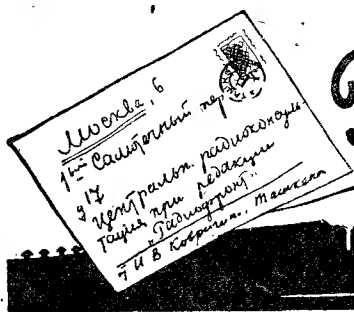 Москва, 6
1ый Самотечный пер
д 17
Центральн. радиоконсуль-
тация при редакции
"Радиофронт".
И В Ковригин, Ташкент